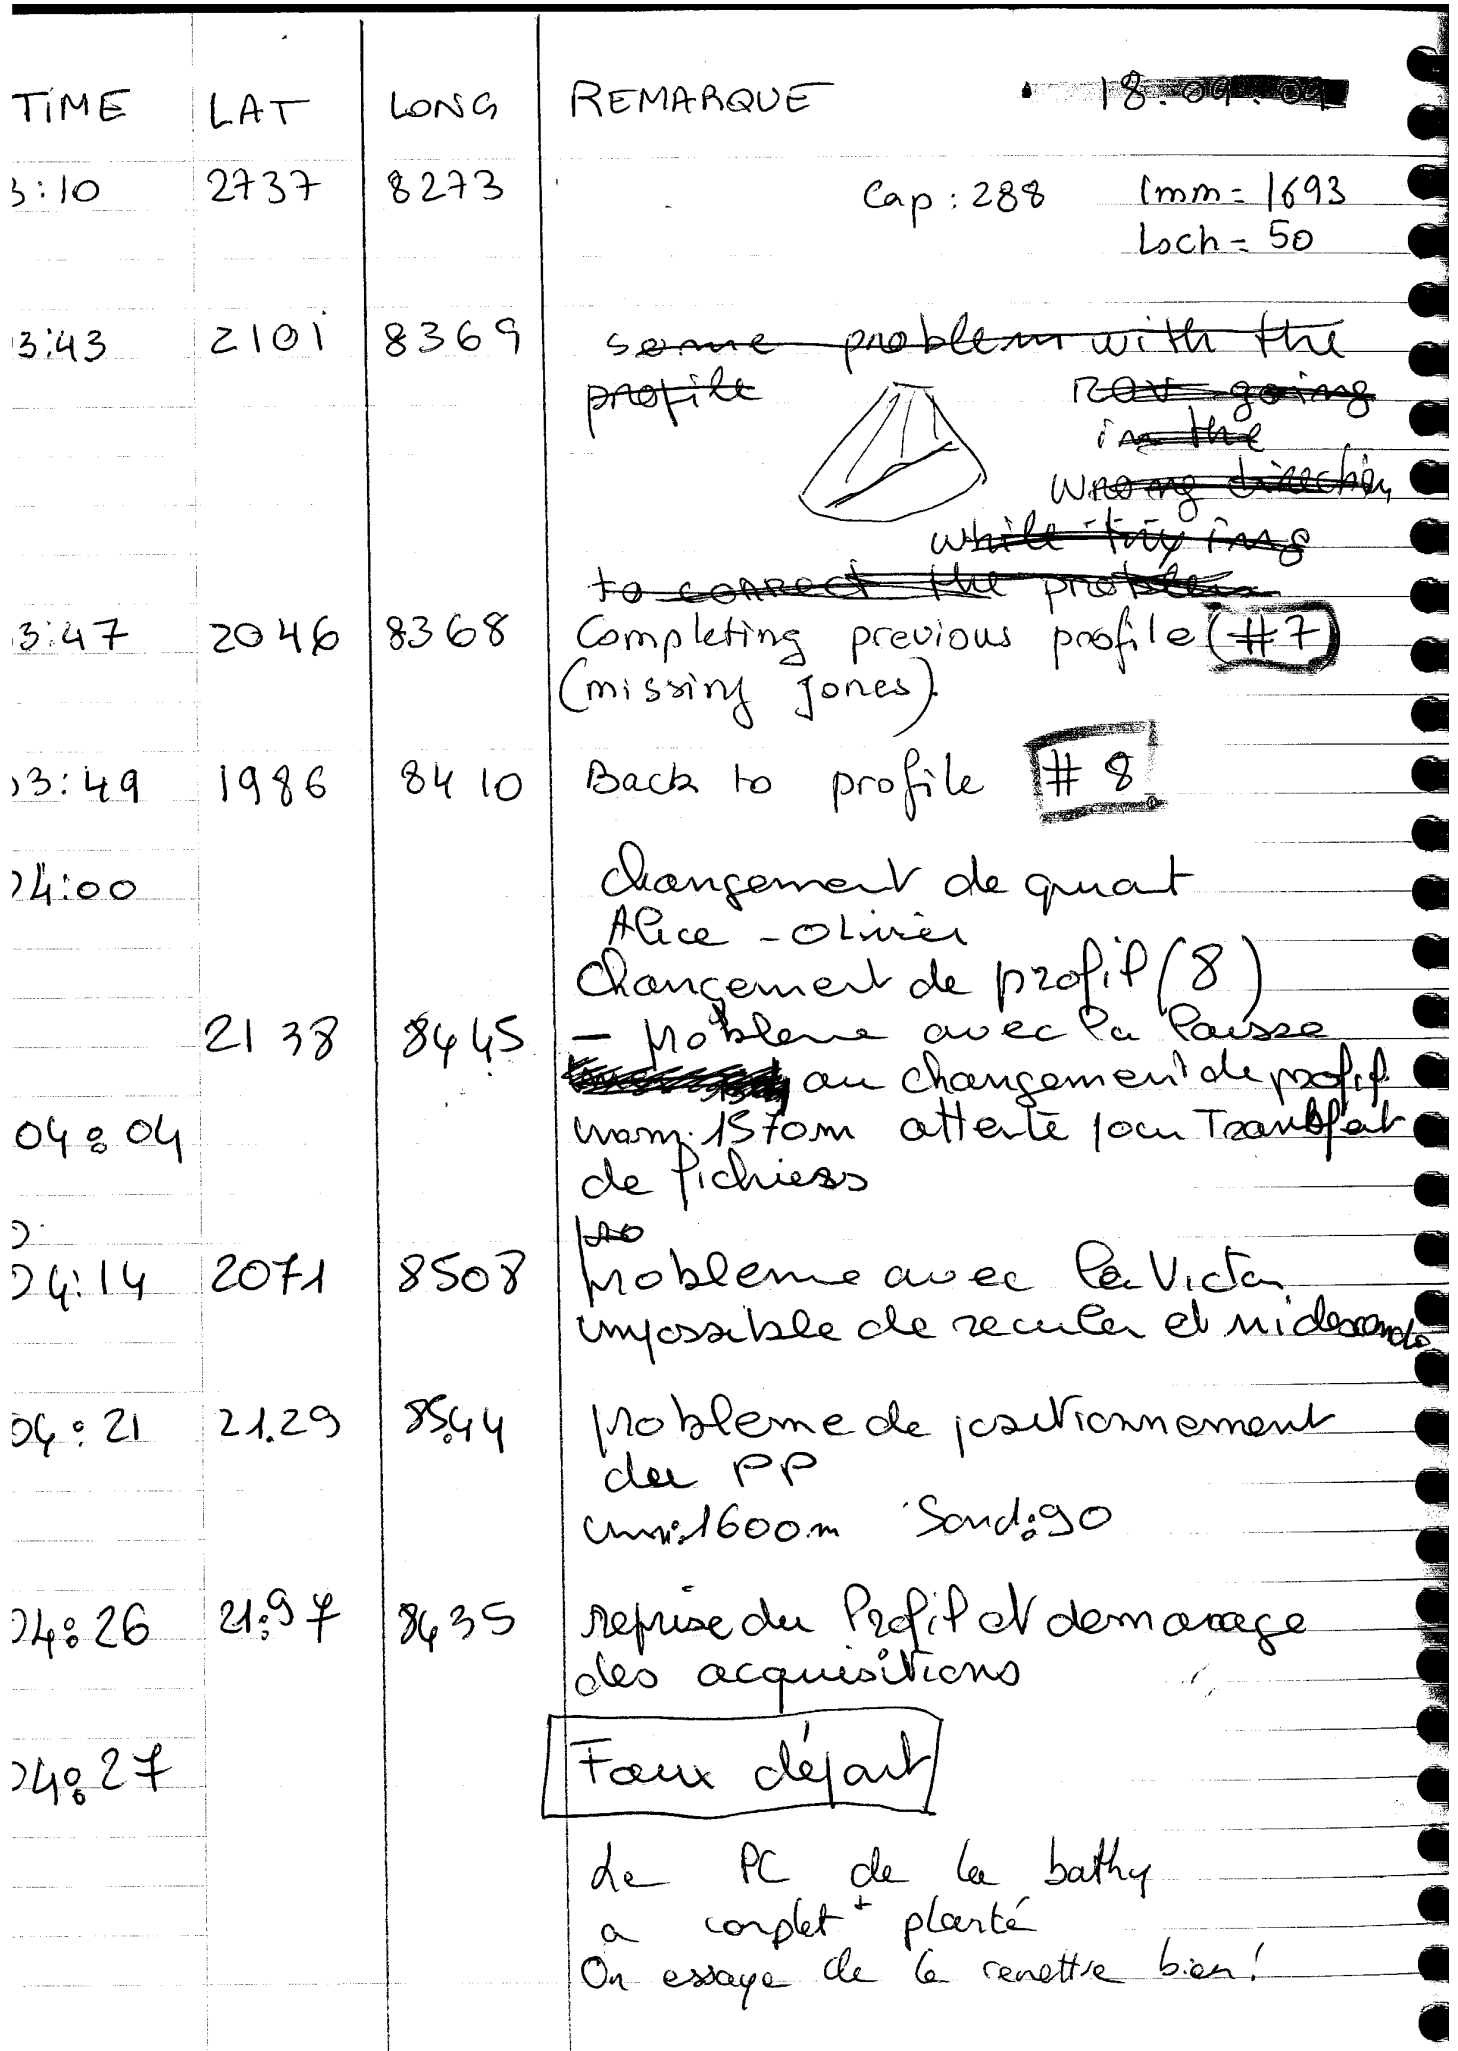 TIME LAT LONG REMARQUE 18.09.09
3:10 2737 8273 Cap: 288 Imm = 1693
Loch = 50
3:43 2101 8369 some problem with the
profile ROV going
in the
wrong direction
while trying
to correct the problem
3:47 2046 8368 Completing previous profile (#7)
(missing zones).
03:49 1986 8410 Back to profile #8
04:00 changement de quart
Alice - Olivier
changement de profil (8)
2138 8445 - probleme avec la
au changement de profil
04:04 imm. 1570m attente pour
de fichiers
pro
04:14 2071 8508 probleme avec le Victor
impossible de reculer et ni descendre
04:21 21.29 85.44 probleme de positionnement
du PP
imm: 1600m Sond: 90
04:26 21:97 8635 reprise du Profil et demarage
des acquisitions
04:27 Faux départ
Le PC de la bathy
a complet+ planté
On essaye de le remettre bien!